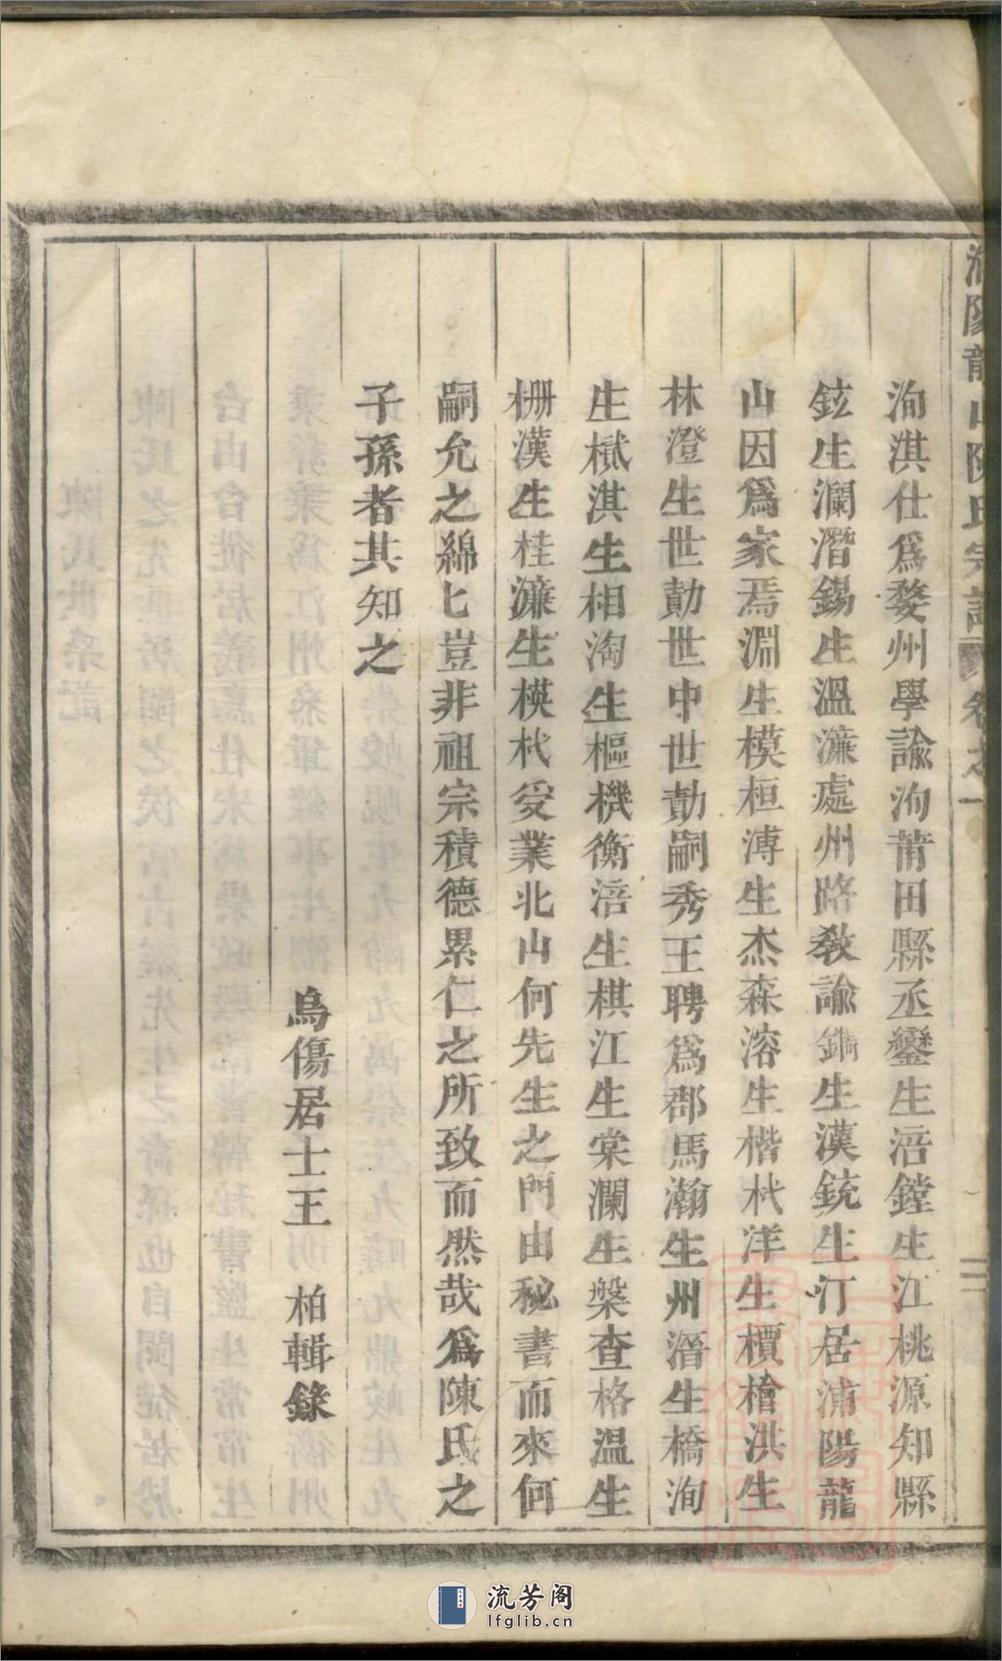 陽龍山陳氏宗譜 卷之一
洵淇仕爲婺州學諭洵莆田縣丞鑾生涪鏜生江桃源知縣
鉉生瀾潛錫生溫濂處州路教諭鐲生漢銃生汀居浦陽龍
山因爲家焉淵生模桓溥生杰森溶生楷杙洋生檟檜洪生
林澄生世勣世中世勣嗣秀王聘爲郡馬瀚生州潛生橋洵
生樲淇生相淘生樞機衡涪生棋江生棠瀾生槃查格溫生
栅漢生桂濂生模杙受業北山何先生之門由秘書而來何
嗣允之綿匕豈非祖宗積德累仁之所致而然哉爲陳氏之
子孫者其知之
烏傷居士王 柏輯錄
流芳阁
lfglib.cn